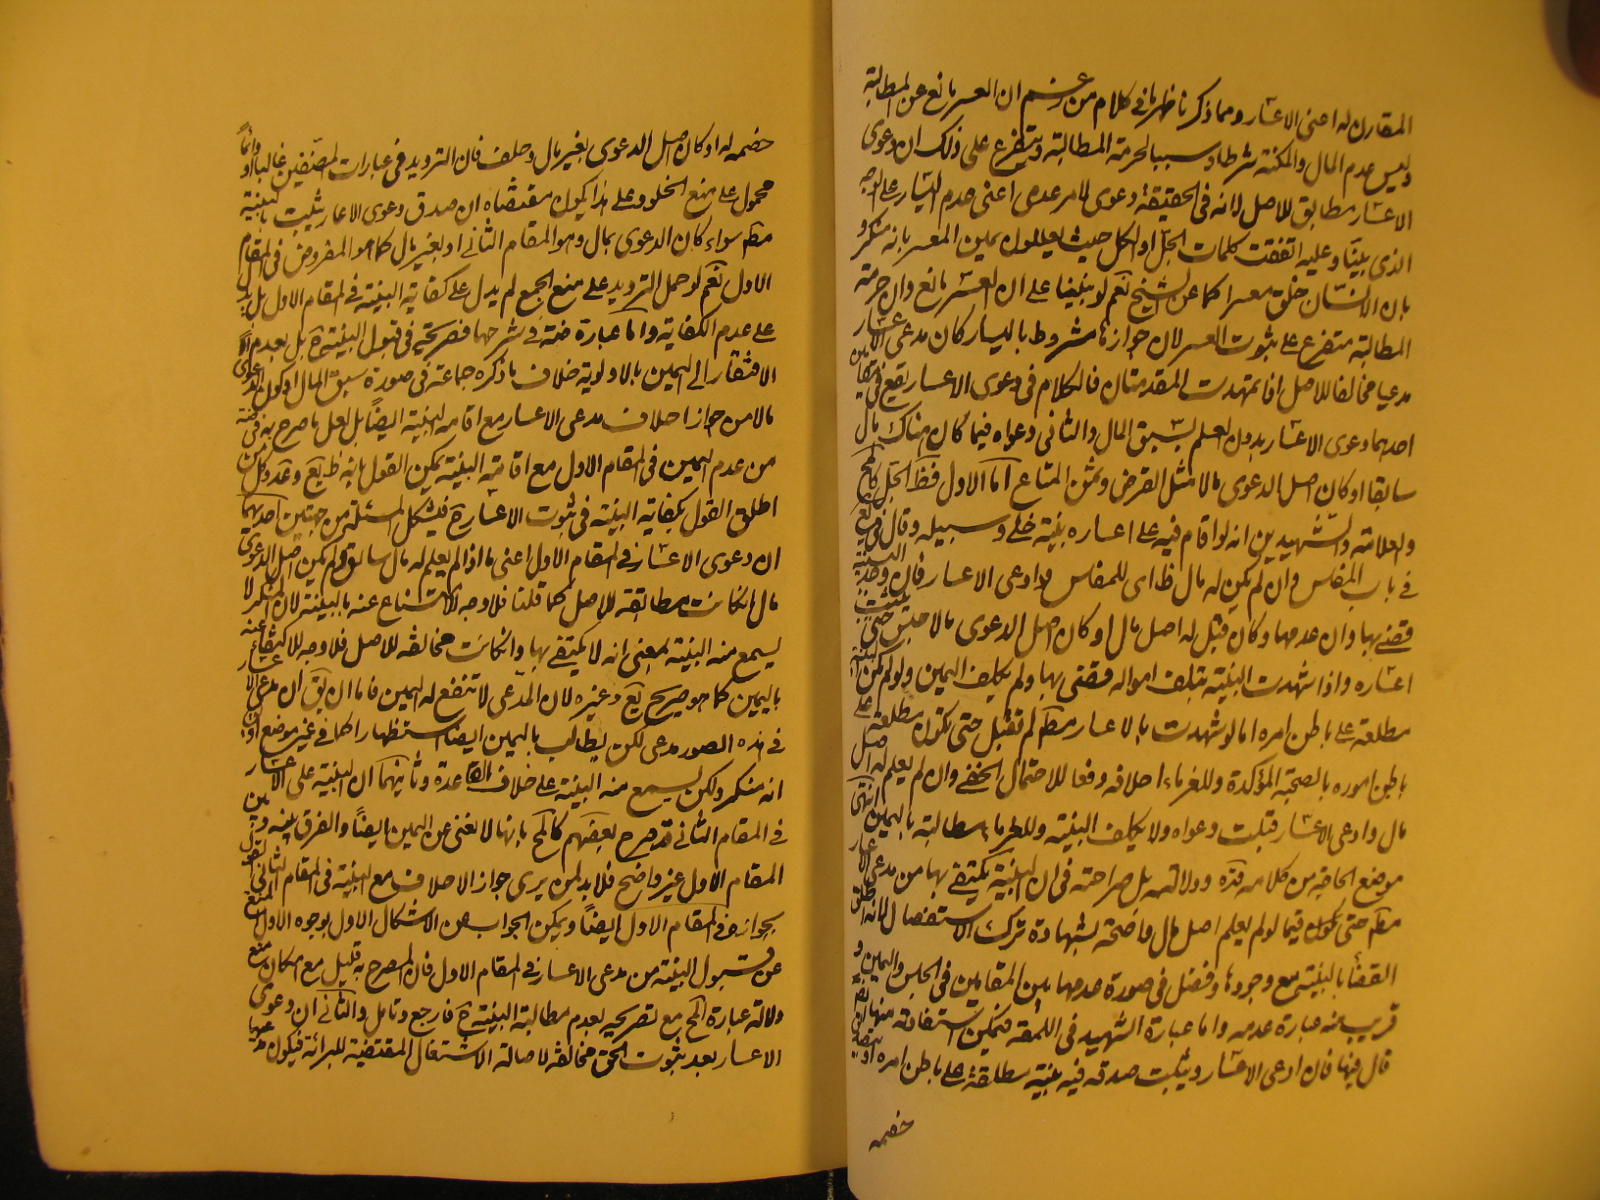 المقارن له اعنى الاعسار ومما ذكرنا ظهر ما فى كلام من زعم ان العسر مانع عن المطالبة
وليس عدم المال والمكنة شرطا وسببا لحرمة المطالبة ويتفرع على ذلك ان دعوى
الاعسار مطابق للاصل لانه فى الحقيقة دعوى لامر عدمى اعنى عدم اليسار على الوجه
الذى بينا وعليه اتفقت كلمات الجل او الكل حيث يعللون يمين المعسر بانه منكر و
بان الانسان خلق معسرا كما عن الشيخ نعم لو بنينا على ان العسر مانع وان حرمة
المطالبة متفرع على ثبوت العسر لان جوازها مشروط باليسار كان مدعى الاعسار
مدعيا مخالفا للاصل اذا تمهدت المقدمتان فالكلام فى دعوى الاعسار يقع فى مقامين
احدهما دعوى الاعسار بدون العلم بسبق المال والثانى دعواه فيما كان هناك مال
سابقا او كان اصل الدعوى مالا مثل القرض وثمن المتاع اما الاول فظ الجل كالمح
والعلامة والشهيدين انه لو اقام فيه على اعساره بينة خلى وسبيله وقال فى يع
فى باب المفلس وان لم يكن له مال ظ اى للمفلس وادعى الاعسار فان وجد البينة
قضى بها وان عدمها وكان قبل له اصل مال او كان اصل الدعوى مالا حبس حتى يثبت
اعساره واذا شهدت البينة بتلف امواله قضى بها ولم يكلف اليمين ولو لم تكن البينة
مطلعة على باطن امره اما لو شهدت بالاعسار مطم لم تقبل حتى تكون مطلعة على
باطن اموره بالصحبة المؤكدة وللغرماء احلافه دفعا للاحتمال الخفى وان لم يعلم له اصل
مال وادعى الاعسار قبلت دعواه ولا يكلف البينة وللغرماء مطالبته باليمين انتهى
موضع الحاجة من كلامه قده ودلالته بل صراحته فى ان البينة يكتفى بها من مدعى الاعسار
مطم حتى تكون فيما لو لم يعلم اصل مال واضحة لشهادة ترك الاستفصال لانه اطلق
القضا بالبينة مع وجودها وفصل فى صورة عدمها بين المقامين فى الحبس واليمين و
قريب منه عبارة عدمه واما عبارة الشهيد فى اللمعة فيمكن استفادته منها ايضا
قال فيها فان ادعى الاعسار ويثبت صدقه فيه ببينة مطلعة على باطن امره او بتصديق
خصمه
خصمه له او كان اصل الدعوى بغير مال وحلف فان الترديد فى عبارات المصنفين غالبا او دائما
محمول على منع الخلو وعلى هذا يكون مقتضاه ان صدق دعوى الاعسار يثبت بالبينة
مطم سواء كان الدعوى بمال وهو المقام الثانى او بغير مال كما هو المفروض فى المقام
الاول نعم لو حمل الترديد على منع الجمع لم يدل على كفاية البينة فى المقام الاول بل يدل
على عدم الكفاية واما عبارة ضة فى شرحها فصريحة فى قبول البينة ح بل بعدم
الافتقار الى اليمين بالاولوية خلاف ما ذكره جماعة فى صورة سبق المال او كون الدعوى
مالا من جواز احلاف مدعى الاعسار مع اقامة البينة ايضا بل لعل ما صرح به فى ضة
من عدم اليمين فى المقام الاول مع اقامة البينة يمكن القول بانه ظ يع وعد وكل من
اطلق القول بكفاية البينة فى ثبوت الاعسار ح فيشكل المسئلة من جهتين احديهما
ان دعوى الاعسار فى المقام الاول اعنى ما اذا لم يعلم له مال سابق ولم يكن اصل الدعوى
مال ان كانت مطابقة للاصل كما قلنا فلا وجه للاستماع عنه بالبينة لان المنكر لا
يسمع منه البينة بمعنى انه لا يكتفى بها وان كانت مخالفة للاصل فلا وجه للاكتفاء عنه
باليمين كما هو صريح يع وغيره لان المدعى لا تنفع له اليمين فاما ان يق ان مدعى الاعسار
فى هذه الصور مدعى لكن يطالب باليمين ايضا استظهارا كما فى غير موضع او
انه منكر ولكن يسمع منه البينة على خلاف القاعدة وثانيهما ان البينة على الاعسار
فى المقام الثانى قد صرح بعضهم كالمح بانها لا تغنى عن اليمين ايضا والفرق بينه وبين
المقام الاول غير واضح فلا بد لمن يرى جواز الاحلاف مع البينة فى المقام الثانى القول
بجوازه فى المقام الاول ايضا ويمكن الجواب عن الاشكال الاول بوجوه الاول المنع
عن قبول البينة من مدعى الاعسار فى المقام الاول فان المصرح به قليل مع امكان منع
دلالة عبارة المح مع تصريحه بعدم مطالبة البينة ح فارجع وتامل والثانى ان دعوى
الاعسار بعد ثبوت الحق مخالفة لاصالة الاشتغال المقتضية للبرائة فيكون مدعيا